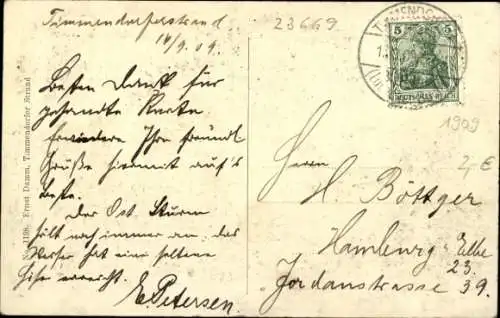 Timmendorferstrand
14/9.09.
Besten Dank für
gesandte Karte
Erwiedere Ihre freundl
Grüße hiermit auf's
beste.
Der Ost. Sturm
hält noch immer an. das
Wasser hat eine seltene
Höhe erreicht.
E. Petersen.
1198. Ernst Damm, Timmendorfer Strand
23669
TIMMENDO
5 5
DEUTSCHES REICH
1909
2,-€
Herrn
H. Böttger
Hamburg Elbe
23.
Jordanstrasse 39.